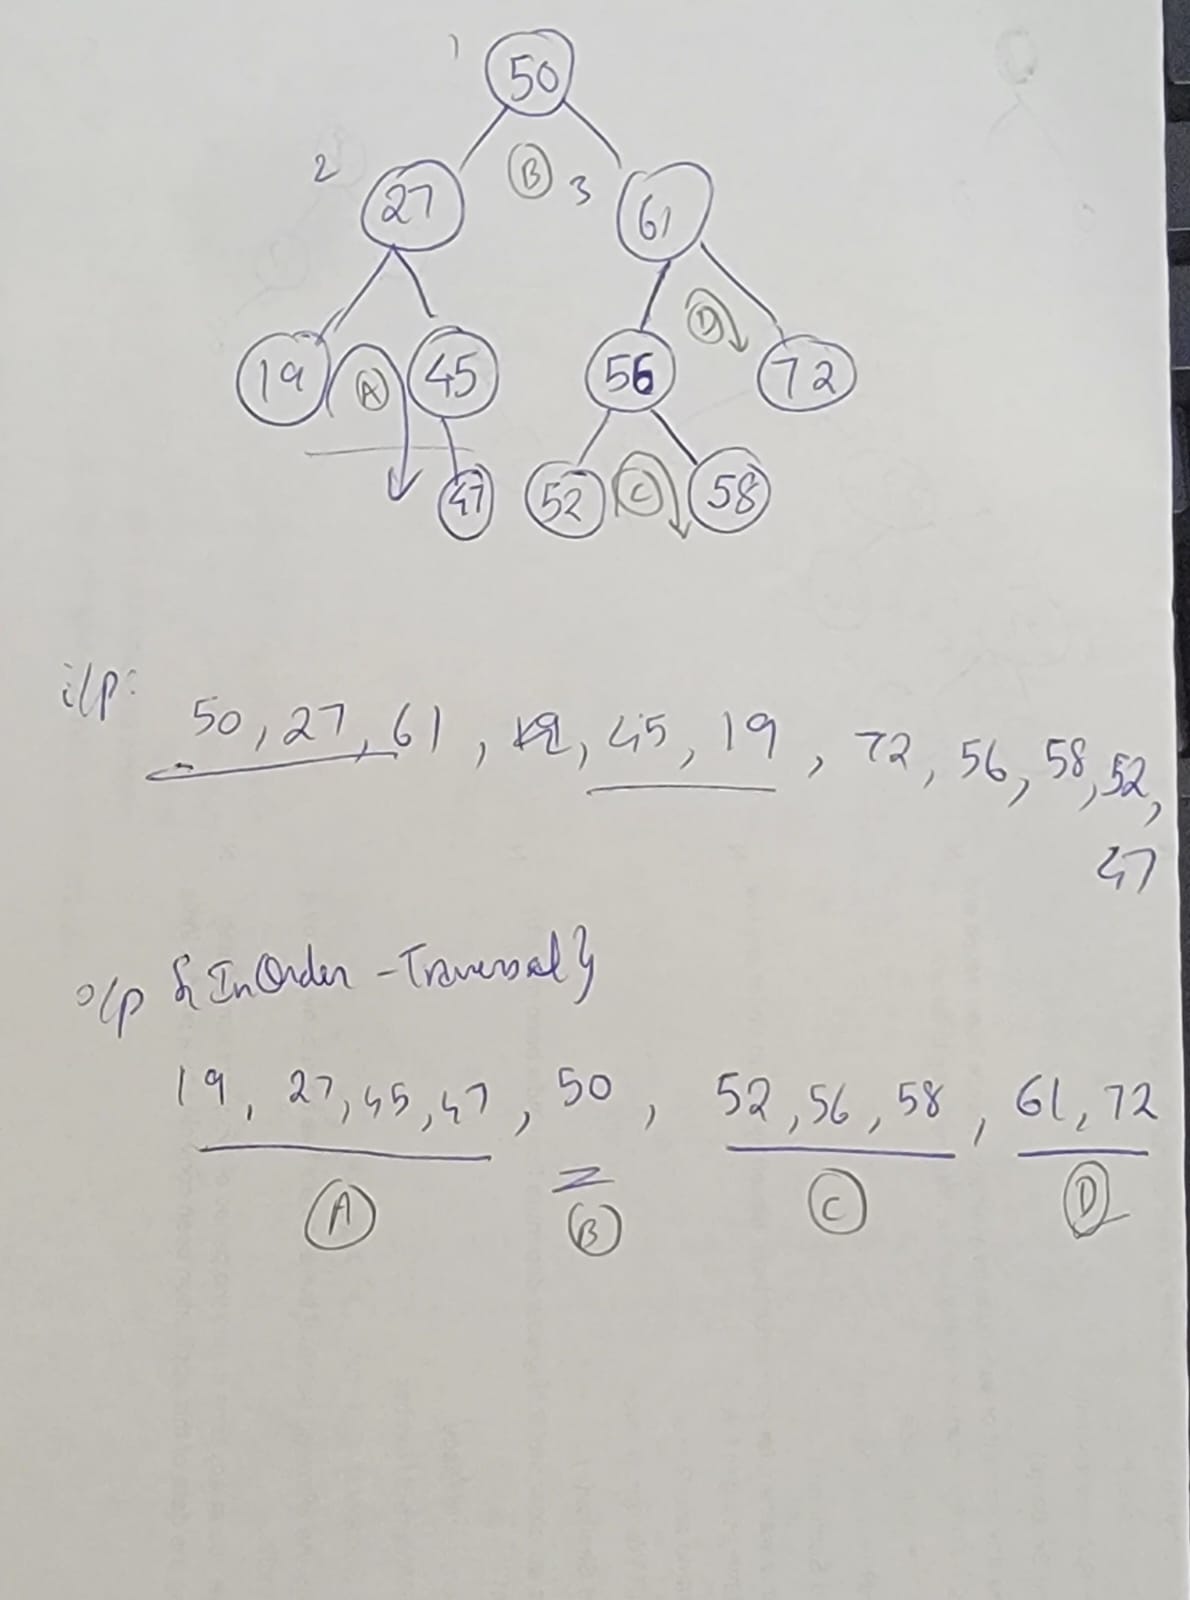 1 50
2 27 B 3 61
19 A 45 56 D 72
47 52 C 58
i/p:
50, 27, 61, 45, 19, 72, 56, 58, 52,
47
o/p {InOrder - Traversal}
19, 27, 45, 47, 50, 52, 56, 58, 61, 72
A B C D